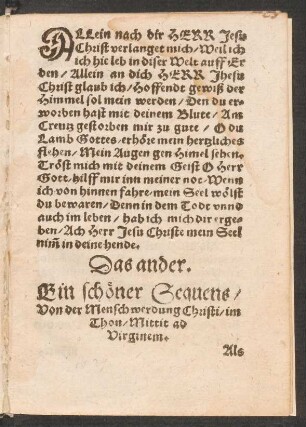 ALLein nach dir HERR Jesu
Christ verlanget mich/ Weil ich
ich hie leb in diser Welt auff Er
den/ Allein an dich HERR Jhesu
Christ glaub ich/ Hoffende gewiß der
Himmel sol mein werden/ Den du er-
worben hast mit deinem Blute/ Am
Creutz gestorben mir zu gute/ O du
Lamb Gottes/ erhöre mein hertzliches
flehen/ Mein Augen gen Himel sehen.
Tröst mich mit deinem Geist O Herr
Gott/ hilff mir inn meiner not/ Wenn
ich von hinnen fahre/ mein Seel wölst
du bewaren/ Denn in dem Todt vnnd
auch im leben/ hab ich mich dir erge-
ben/ Ach Herr Jesu Christe mein Seel
nim̃ in deine hende.
Das ander.
Ein schöner Sequens/
Von der Menschwerdung Christi/ im
Thon/ Mittit ad
Virginem.
Als